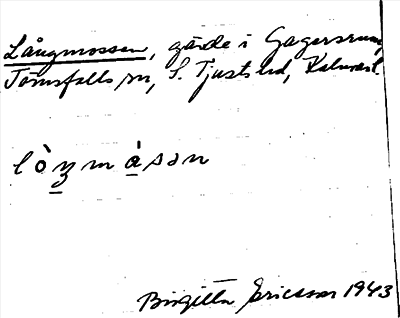 Långmossen, gärde i Gagersrum,
Törnsfalls sn, S. Tjusts hd, Kalmar l.
lò̱ŋmå̱sən
Birgitta Ericsson 1943